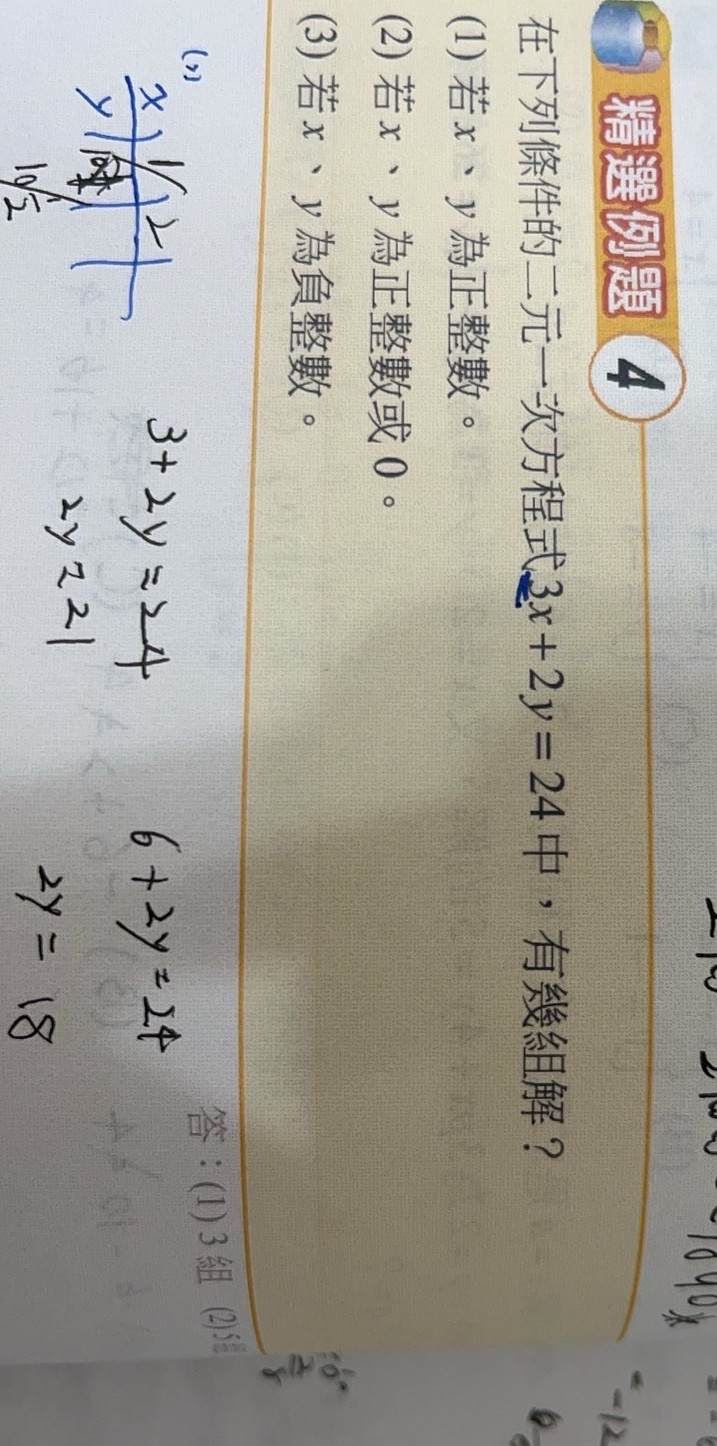 精選例題 4
在下列條件的二元一次方程式3x+2y=24中，有幾組解？
(1) 若x、y為正整數。
(2) 若x、y為正整數或0。
(3) 若x、y為負整數。
答：(1) 3組 (2) 5組
x 1 2
y
10½
3+2y=24
2y=21
6+2y=24
2y=18
-12